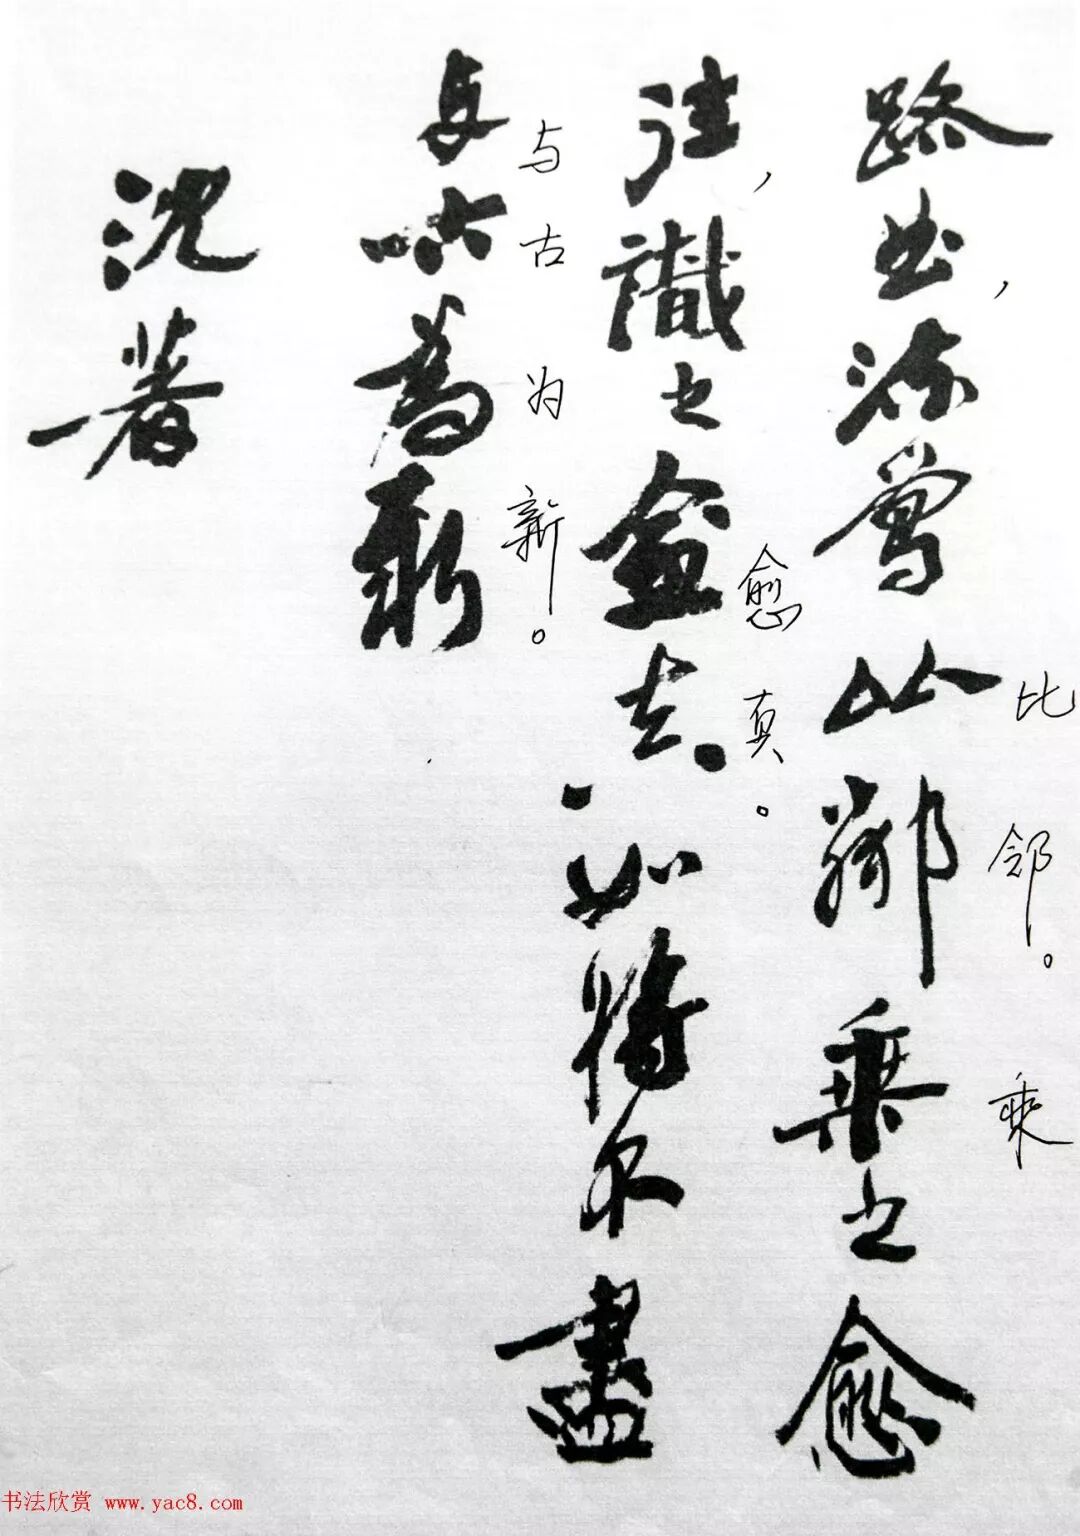 路曲，流鶯比鄰乘之愈
比邻。乘
往，識之愈真如將不盡
愈真。
與古為新
与古为新。
沈著
书法欣赏 www.yac8.com